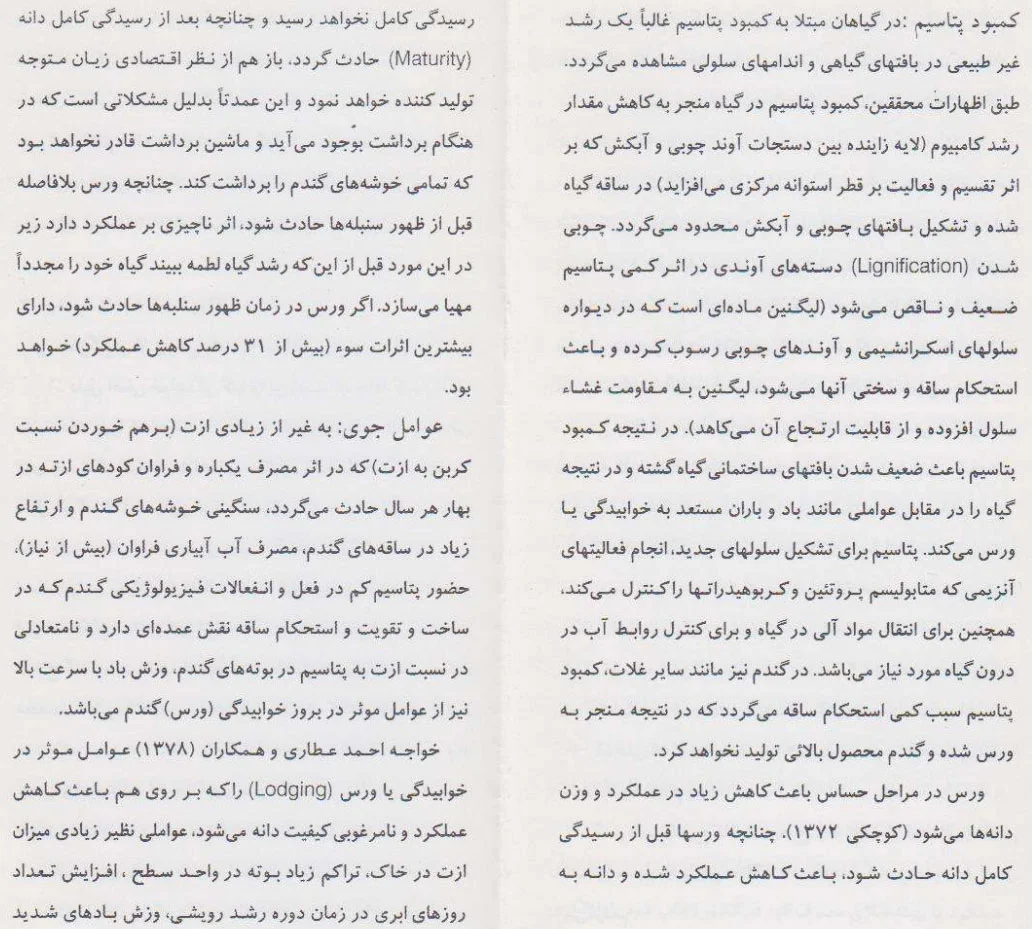 کمبود پتاسیم :در گیاهان مبتلا به کمبود پتاسیم غالباً یک رشد
غیر طبیعی در بافتهای گیاهی و اندامهای سلولی مشاهده می‌گردد.
طبق اظهارات محققین، کمبود پتاسیم در گیاه منجر به کاهش مقدار
رشد کامبیوم (لایه زاینده بین دستجات آوند چوبی و آبکش که بر
اثر تقسیم و فعالیت بر قطر استوانه مرکزی می‌افزاید) در ساقه گیاه
شده و تشکیل بافتهای چوبی و آبکش محدود می‌گردد. چوبی
شدن (Lignification) دسته‌های آوندی در اثر کمی پتاسیم
ضعیف و ناقص می‌شود (لیگنین ماده‌ای است که در دیواره
سلولهای اسکرانشیمی و آوندهای چوبی رسوب کرده و باعث
استحکام ساقه و سختی آنها می‌شود، لیگنین به مقاومت غشاء
سلول افزوده و از قابلیت ارتجاع آن می‌کاهد). در نتیجه کمبود
پتاسیم باعث ضعیف شدن بافتهای ساختمانی گیاه گشته و در نتیجه
گیاه را در مقابل عواملی مانند باد و باران مستعد به خوابیدگی یا
ورس می‌کند. پتاسیم برای تشکیل سلولهای جدید، انجام فعالیتهای
آنزیمی که متابولیسم پروتئین و کربوهیدراتها را کنترل می‌کند،
همچنین برای انتقال مواد آلی در گیاه و برای کنترل روابط آب در
درون گیاه مورد نیاز می‌باشد. در گندم نیز مانند سایر غلات، کمبود
پتاسیم سبب کمی استحکام ساقه می‌گردد که در نتیجه منجر به
ورس شده و گندم محصول بالائی تولید نخواهد کرد.
ورس در مراحل حساس باعث کاهش زیاد در عملکرد و وزن
دانه‌ها می‌شود (کوچکی ۱۳۷۲). چنانچه ورسها قبل از رسیدگی
کامل دانه حادث شود، باعث کاهش عملکرد شده و دانه به
رسیدگی کامل نخواهد رسید و چنانچه بعد از رسیدگی کامل دانه
(Maturity) حادث گردد، باز هم از نظر اقتصادی زیان متوجه
تولید کننده خواهد نمود و این عمدتاً بدلیل مشکلاتی است که در
هنگام برداشت بوجود می‌آید و ماشین برداشت قادر نخواهد بود
که تمامی خوشه‌های گندم را برداشت کند. چنانچه ورس بلافاصله
قبل از ظهور سنبله‌ها حادث شود، اثر ناچیزی بر عملکرد دارد زیر
در این مورد قبل از این که رشد گیاه لطمه ببیند گیاه خود را مجدداً
مهیا می‌سازد. اگر ورس در زمان ظهور سنلبه‌ها حادث شود، دارای
بیشترین اثرات سوء (بیش از ۳۱ درصد کاهش عملکرد) خواهد
بود.
عوامل جوی: به غیر از زیادی ازت (برهم خوردن نسبت
کربن به ازت) که در اثر مصرف یکباره و فراوان کودهای ازته در
بهار هر سال حادث می‌گردد، سنگینی خوشه‌های گندم و ارتفاع
زیاد در ساقه‌های گندم، مصرف آب آبیاری فراوان (بیش از نیاز)،
حضور پتاسیم کم در فعل و انفعالات فیزیولوژیکی گندم که در
ساخت و تقویت و استحکام ساقه نقش عمده‌ای دارد و نامتعادلی
در نسبت ازت به پتاسیم در بوته‌های گندم، وزش باد با سرعت بالا
نیز از عوامل موثر در بروز خوابیدگی (ورس) گندم می‌باشد.
خواجه احمد عطاری و همکاران (۱۳۷۸) عوامل موثر در
خوابیدگی یا ورس (Lodging) را که بر روی هم باعث کاهش
عملکرد و نامرغوبی کیفیت دانه می‌شود، عواملی نظیر زیادی میزان
ازت در خاک، تراکم زیاد بوته در واحد سطح ، افزایش تعداد
روزهای ابری در زمان دوره رشد رویشی، وزش بادهای شدید